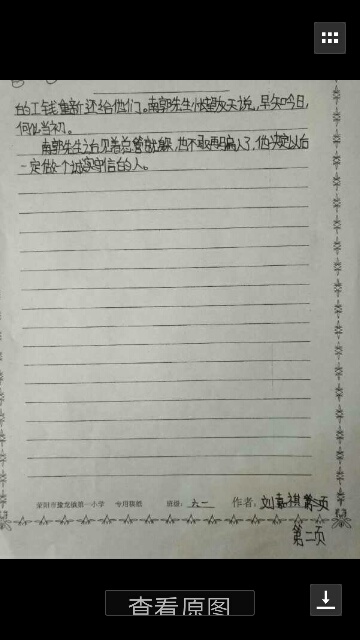 的工钱重新还给他们。南郭先生长叹天说,早知今日,
何似当初。
南郭先生之后见着总管就躲,也不敢再骗人了,他决定以后
一定做个诚实守信的人。
荥阳市豫龙镇第一小学 专用稿纸 班级:六一 作者:刘嘉祺
第二页
查看原图